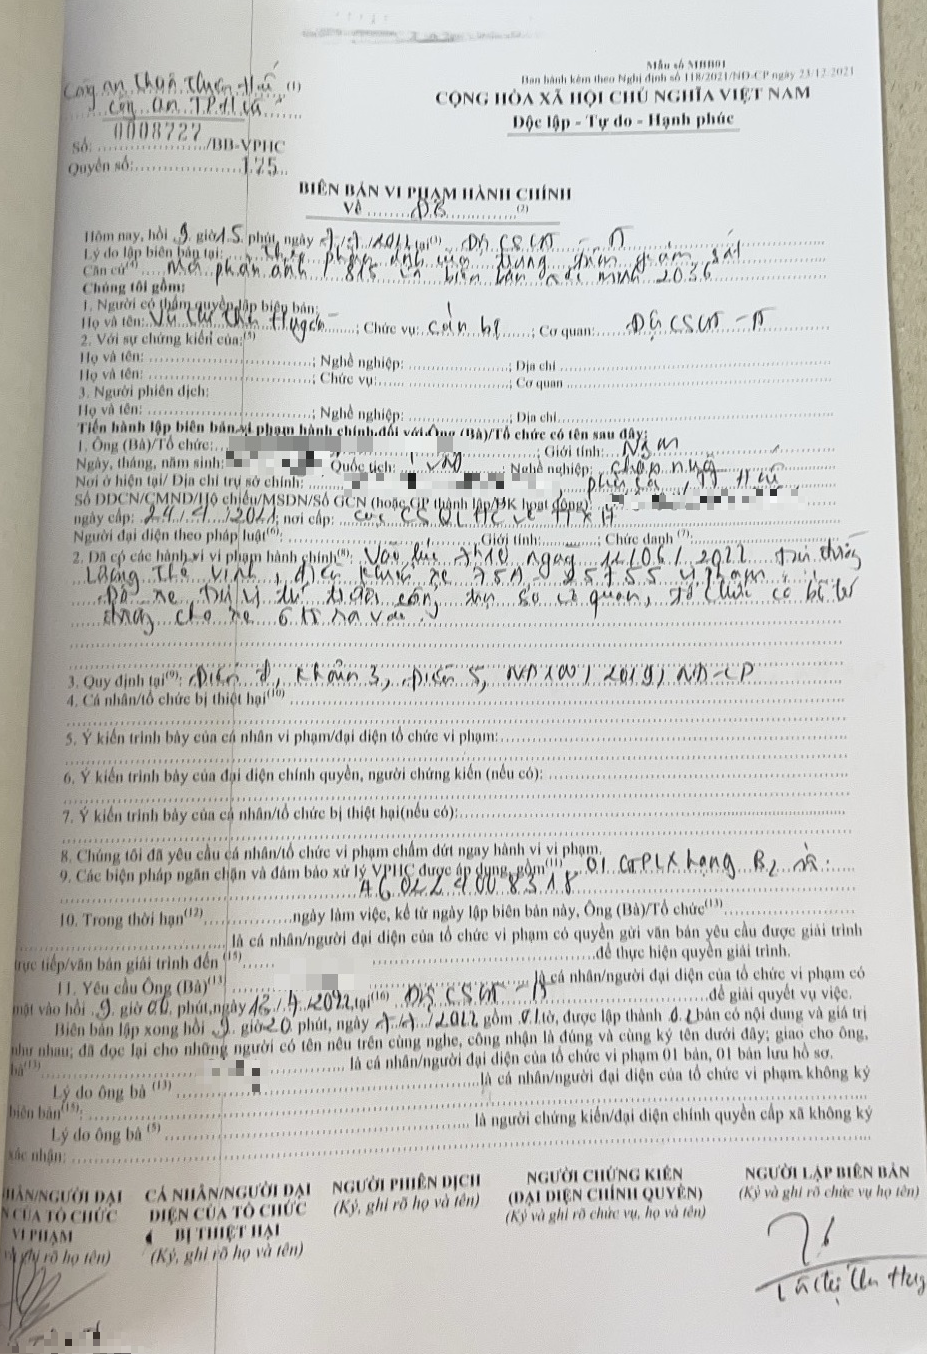 Mẫu số MBB01
Ban hành kèm theo Nghị định số 118/2021/NĐ-CP ngày 23/12/2021
CỘNG HÒA XÃ HỘI CHỦ NGHĨA VIỆT NAM
Độc lập - Tự do - Hạnh phúc
Công an (1)
Công an T.P.
Số: 0008727/BB-VPHC
Quyển số: 175
BIÊN BẢN VI PHẠM HÀNH CHÍNH
Về ĐB (2)
Hôm nay, hồi 9 giờ 15 phút, ngày 7/7/2022 tại(3) Đội CSGT
Lý do lập biên bản tại: trung tâm giám sát
Căn cứ(4) phản ánh 815 và biên bản xác minh 2036
Chúng tôi gồm:
1. Người có thẩm quyền lập biên bản:
Họ và tên: ; Chức vụ: cán bộ ; Cơ quan: Đội CSGT
2. Với sự chứng kiến của:(5)
Họ và tên: ; Nghề nghiệp: ; Địa chỉ
Họ và tên: ; Chức vụ: ; Cơ quan
3. Người phiên dịch:
Họ và tên: ; Nghề nghiệp: ; Địa chỉ
Tiến hành lập biên bản vi phạm hành chính đối với Ông (Bà)/Tổ chức có tên sau đây:
1. Ông (Bà)/Tổ chức: ; Giới tính: Nam
Ngày, tháng, năm sinh: Quốc tịch: VN ; Nghề nghiệp:
Nơi ở hiện tại/ Địa chỉ trụ sở chính: , TT Huế
Số DDCN/CMND/Hộ chiếu/MSDN/Số GCN (hoặc GP thành lập/ĐK hoạt động):
ngày cấp: 24/4/2021; nơi cấp: cục CSQLHC về TTXH
Người đại diện theo pháp luật(6): Giới tính: ; Chức danh (7):
2. Đã có các hành vi vi phạm hành chính(8): Vào lúc ngày 12/06/2022 tại đường
Lương Thế Vinh, điều khiển xe 75A 25755 vi phạm:
Đỗ xe tại vị trí trước cổng, trụ sở cơ quan, tổ chức có bố trí
đường cho xe ô tô ra vào
3. Quy định tại(9): Điểm đ, khoản 3, Điều 5, NĐ 100/2019/NĐ-CP
4. Cá nhân/tổ chức bị thiệt hại(10)
5. Ý kiến trình bày của cá nhân vi phạm/đại diện tổ chức vi phạm:
6. Ý kiến trình bày của đại diện chính quyền, người chứng kiến (nếu có):
7. Ý kiến trình bày của cá nhân/tổ chức bị thiệt hại(nếu có):
8. Chúng tôi đã yêu cầu cá nhân/tổ chức vi phạm chấm dứt ngay hành vi vi phạm.
9. Các biện pháp ngăn chặn và đảm bảo xử lý VPHC được áp dụng, gồm(11) 01 GPLX hạng B2 số:
10. Trong thời hạn(12) ngày làm việc, kể từ ngày lập biên bản này, Ông (Bà)/Tổ chức(13)
là cá nhân/người đại diện của tổ chức vi phạm có quyền gửi văn bản yêu cầu được giải trình
trực tiếp/văn bản giải trình đến (15) để thực hiện quyền giải trình.
11. Yêu cầu Ông (Bà)(13) là cá nhân/người đại diện của tổ chức vi phạm có
mặt vào hồi 9 giờ 00 phút, ngày /7/2022, tại(16) Đội CSGT để giải quyết vụ việc.
Biên bản lập xong hồi 9 giờ 20 phút, ngày 7/7/2022 gồm 01 tờ, được lập thành 02 bản có nội dung và giá trị
như nhau; đã đọc lại cho những người có tên nêu trên cùng nghe, công nhận là đúng và cùng ký tên dưới đây; giao cho ông,
bà(13) là cá nhân/người đại diện của tổ chức vi phạm 01 bản, 01 bản lưu hồ sơ.
Lý do ông bà (13) là cá nhân/người đại diện của tổ chức vi phạm không ký
biên bản(15):
Lý do ông bà (5) là người chứng kiến/đại diện chính quyền cấp xã không ký
xác nhận:
NHÂN/NGƯỜI ĐẠI
N CỦA TỔ CHỨC
VI PHẠM
ghi rõ họ tên)
CÁ NHÂN/NGƯỜI ĐẠI
DIỆN CỦA TỔ CHỨC
BỊ THIỆT HẠI
(Ký, ghi rõ họ và tên)
NGƯỜI PHIÊN DỊCH
(Ký, ghi rõ họ và tên)
NGƯỜI CHỨNG KIẾN
(ĐẠI DIỆN CHÍNH QUYỀN)
(Ký và ghi rõ chức vụ, họ và tên)
NGƯỜI LẬP BIÊN BẢN
(Ký và ghi rõ chức vụ họ tên)